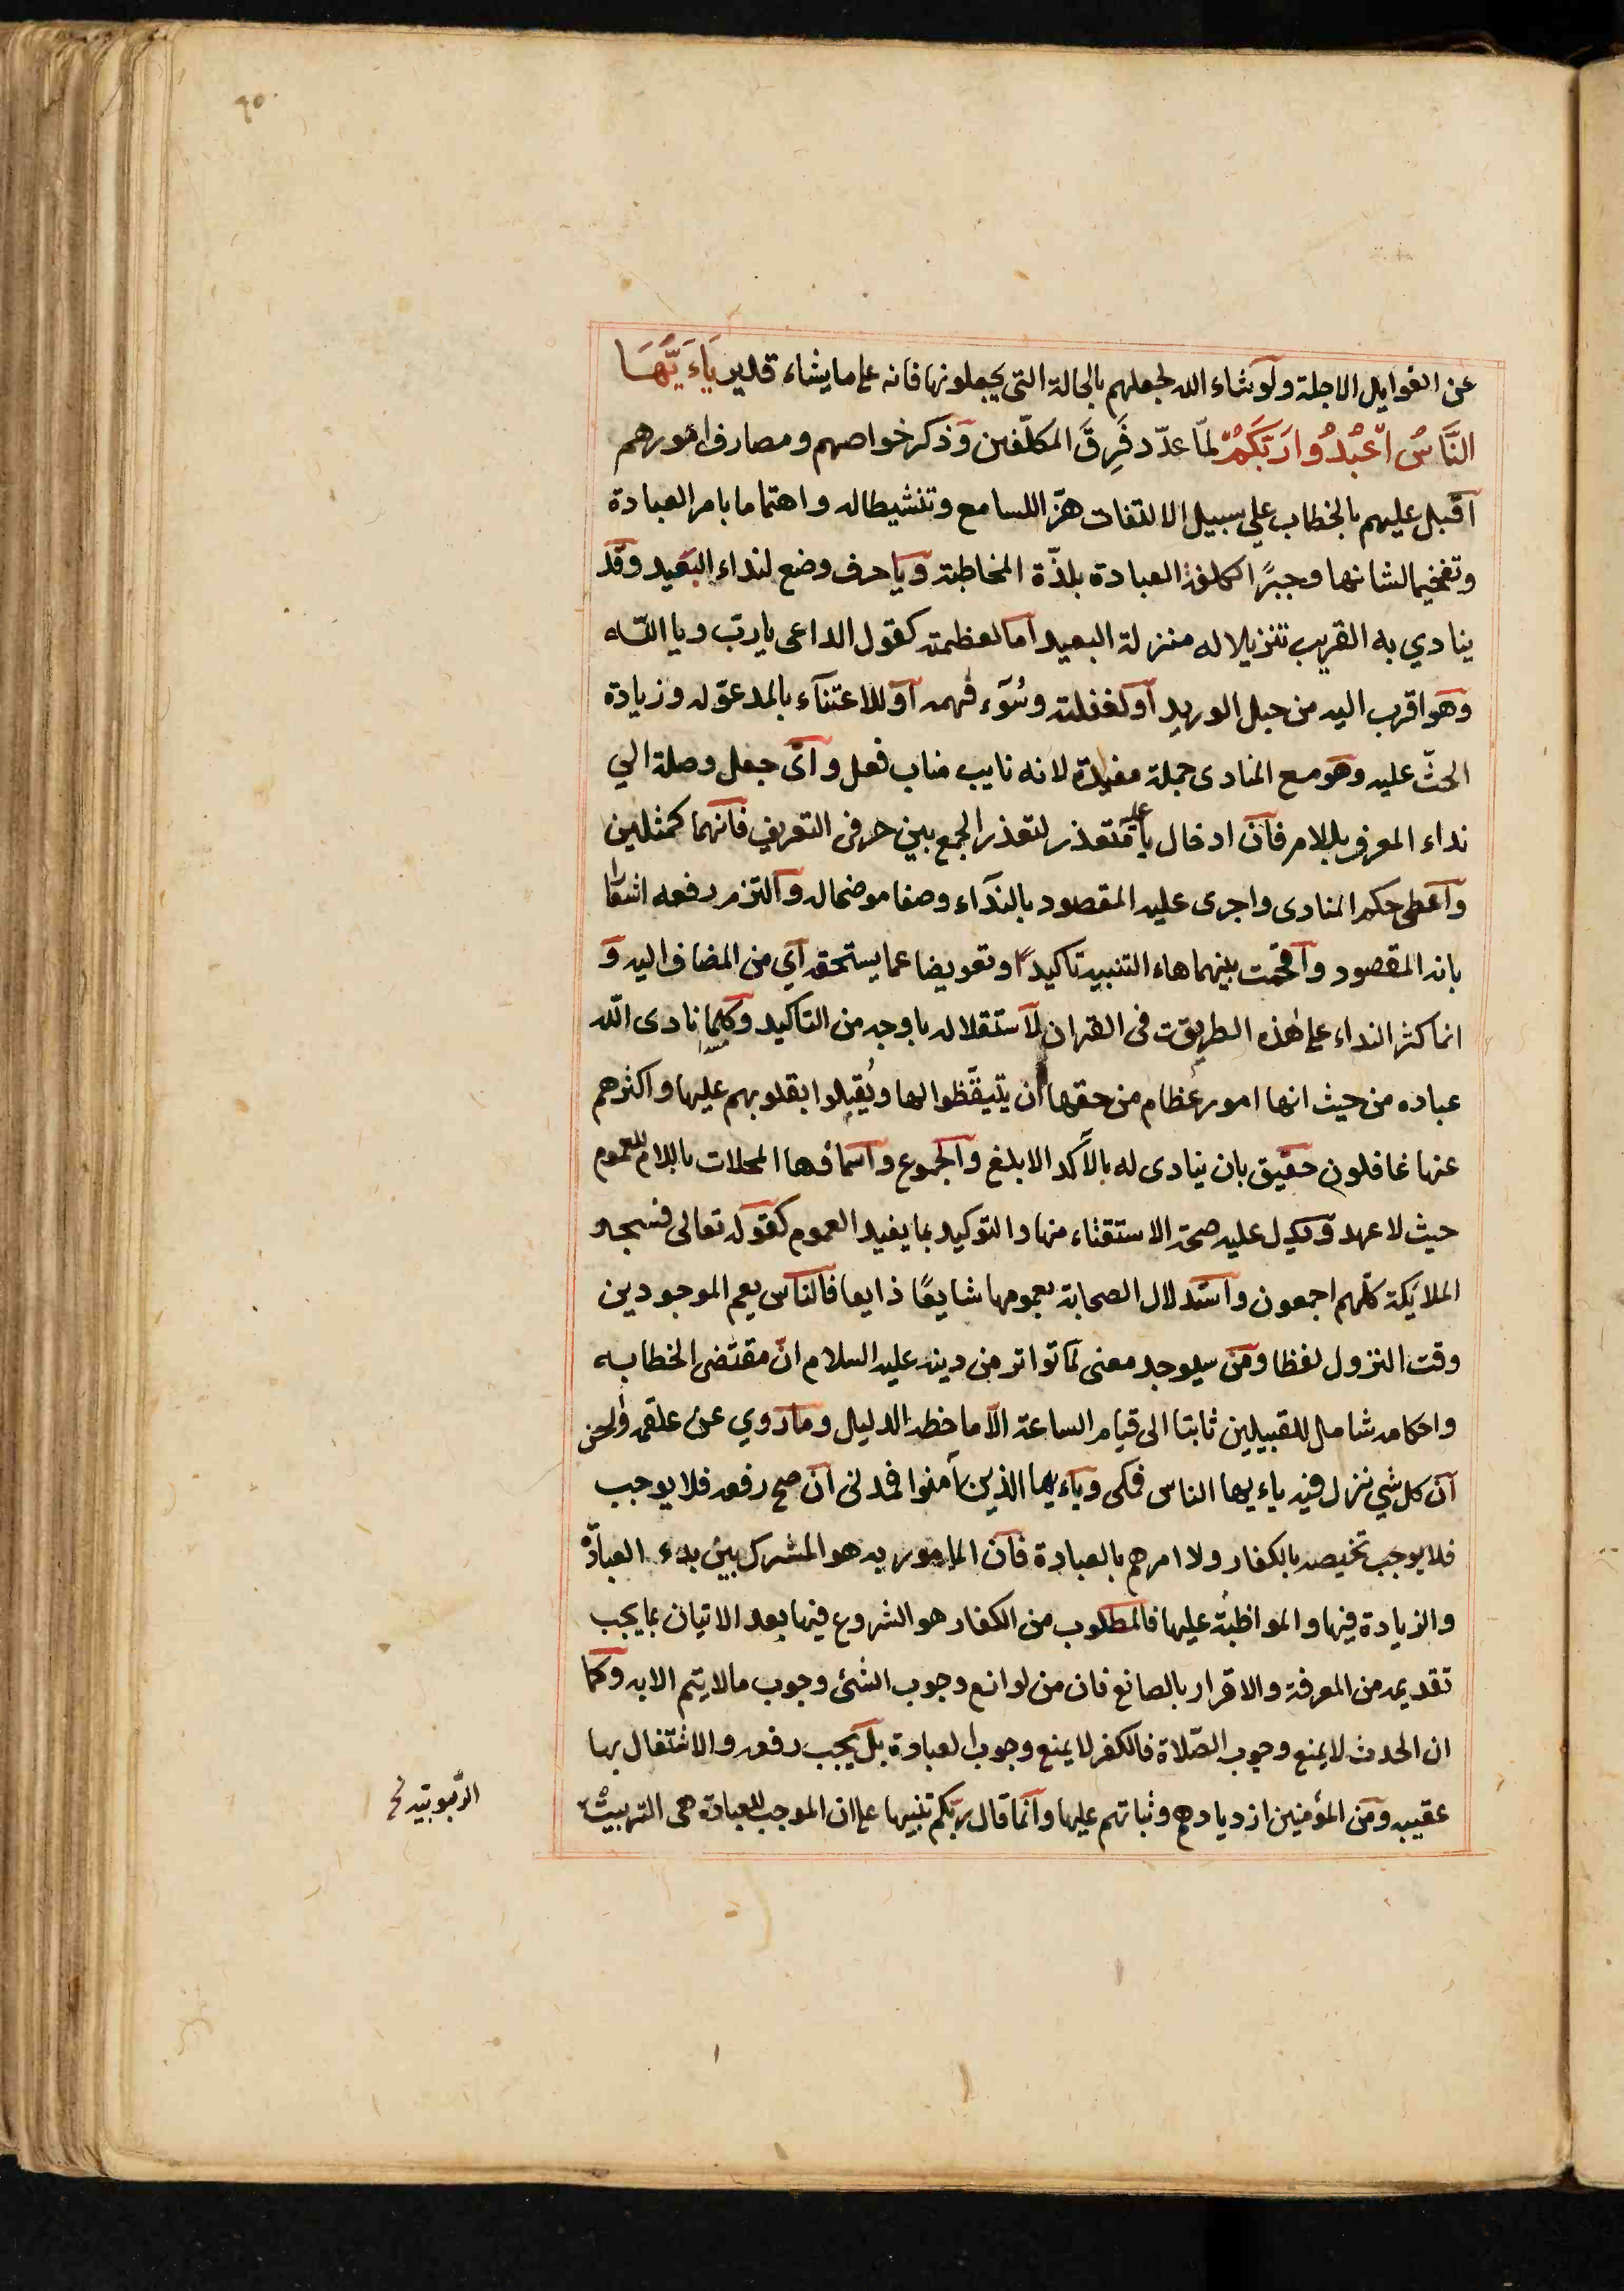 ٩٥
عن الفوايل الاجلة ولو شاء الله لجعلهم بالحالة التى يجعلونها فانه على ما يشاء قدير يَاءَيُّهَا
النَّاسُ اعْبُدُوا رَبَّكُمُ لمّا عدّد فِرَقَ المكلّفين وذكر خواصهم ومصارف امورهم
اقبل عليهم بالخطاب على سبيل الالتفات هزّا للسامع وتنشيطا له واهتماما بامر العبادة
وتفخيما لشانها وجبرًا لكلفة العبادة بلذّة المخاطبة ويا حرف وضع لنداء البعيد وقد
ينادي به القريب تنزيلا له منزلة البعيد اما لعظمته كقول الداعى يا ربّ ويا الله
وهو اقرب اليه من حبل الوريد او لغفلته وسُوء فهمه او للاعتنآء بالمدعوّ له وزيادة
الحثّ عليه وهو مع المنادى جملة مفيدة لانه نايب مناب فعل واى جعل وصلة الي
نداء المعرف باللام فان ادخال يا عليه متعذر لتعذر الجمع بين حرفى التعريف فانهما كمثلين
واعطى حكم المنادى واجرى عليه المقصود بالندآء وصفا موضحا له والتزم رفعه اشعارا
بانه المقصود واقحمت بينهما هاء التنبيه تاكيدًا وتعويضا عما يستحقه اي من المضاف اليه و
انما كثر النداء على هذه الطريقة فى القران لاستقلاله باوجه من التاكيد وكلما نادى الله
عباده من حيث انها امور عظام من حقها ان يتيقّظوا لها ويُقبلوا بقلوبهم عليها واكثرهم
عنها غافلون حقيق بان ينادى له بالآكد الابلغ والجموع واسماؤها المحلات باللام للعموم
حيث لا عهد ويدل عليه صحة الاستقثاء منها والتوكيد بما يفيد العموم كقوله تعالى فسجد
الملايكة كلّهم اجمعون واستدلال الصحابة بعمومها شايعًا ذايعا فالناس يعم الموجودين
وقت النزول لفظا ومن سيوجد معنى لما تواتر من دينه عليه السلام انّ مقتضى الخطابه
واحكامه شامل للقبيلين ثابتا الى قيام الساعة الّا ما خطه الدليل وما روي عن علقمة والحسن
ان كل شي نزل فيه ياءيها الناس فمكى وياءيها الذين آمنوا فمدنى ان صح رفعه فلا يوجب
فلا يوجب تخيصه بالكفار ولا امرهم بالعبادة فان المامور به هو المشرك بين بدء العبادة
والزيادة فيها والمواظبة عليها فالمطلوب من الكفار هو الشروع فيها بعد الاتيان بما يجب
تقديمه من المعرفة والاقرار بالصانع فان من لوانع وجوب الشئ وجوب مالا يتم الا به وكما
ان الحدث لا يمنع وجوب الصّلاة فالكفر لا يمنع وجوب العبادة بل يجب رفعه والاشتغال بها
عقيبه ومن المؤمنين ازديادهم وثباتهم عليها وانما قال ربّكم تنبيها على ان الموجب للعبادة هى التربيث
الرّبوبيّة نخ